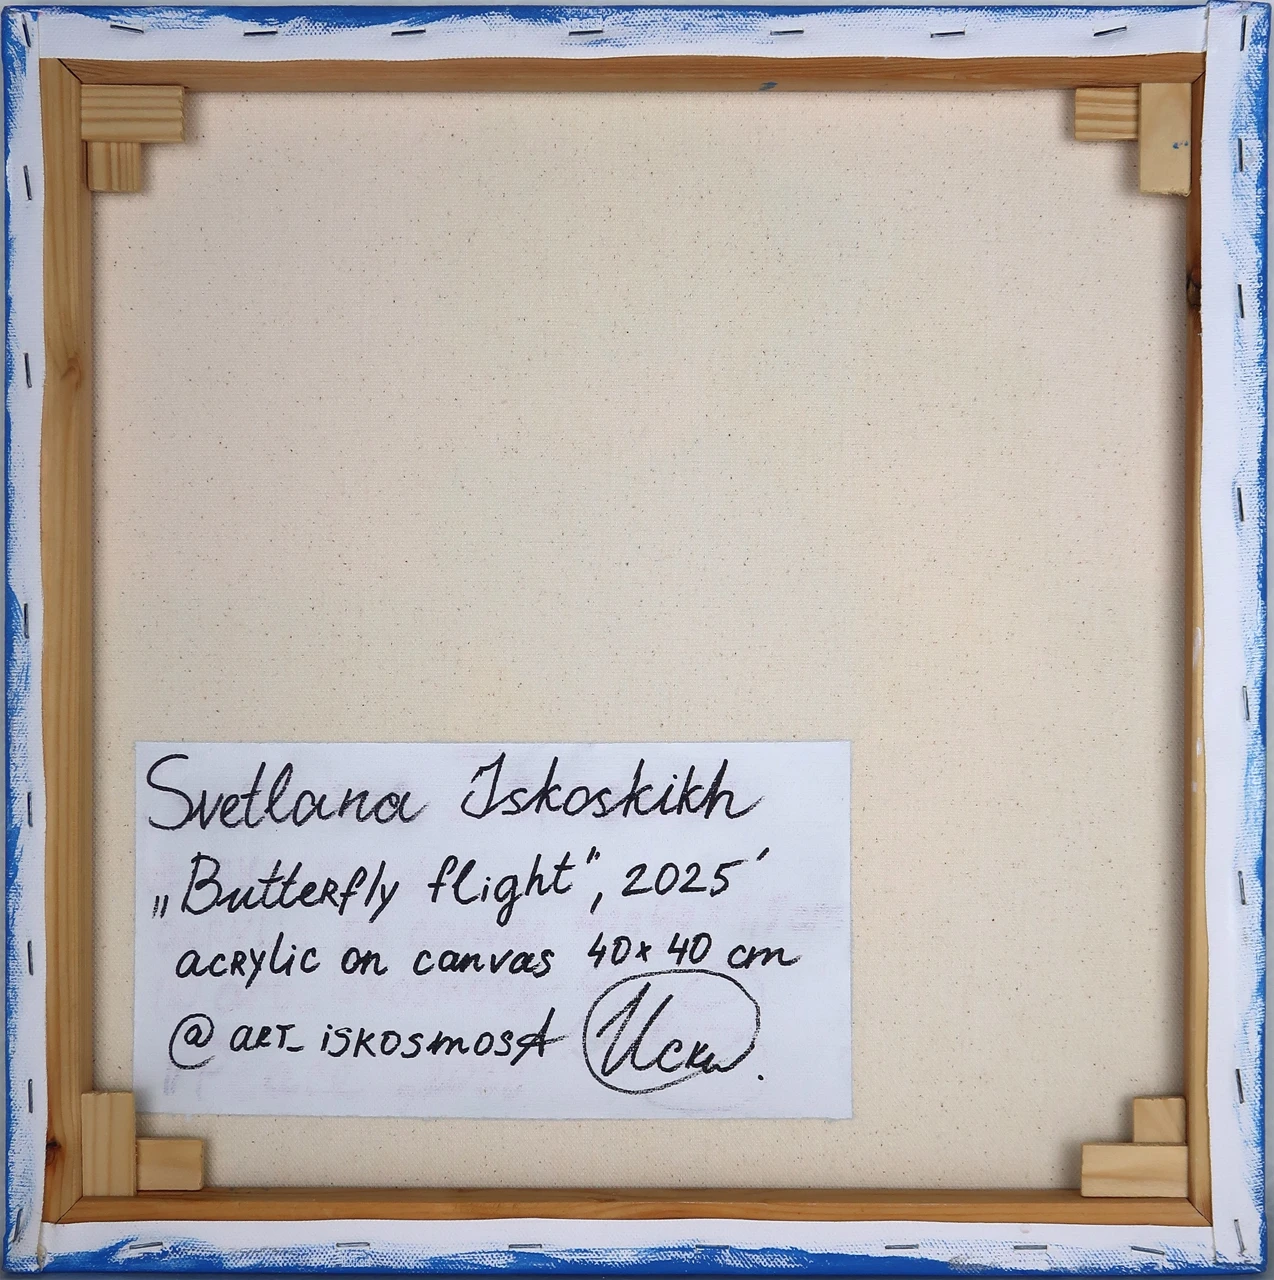 Svetlana Iskoskikh
„Butterfly flight", 2025'
acrylic on canvas 40x40 cm
@art_iskosmosA